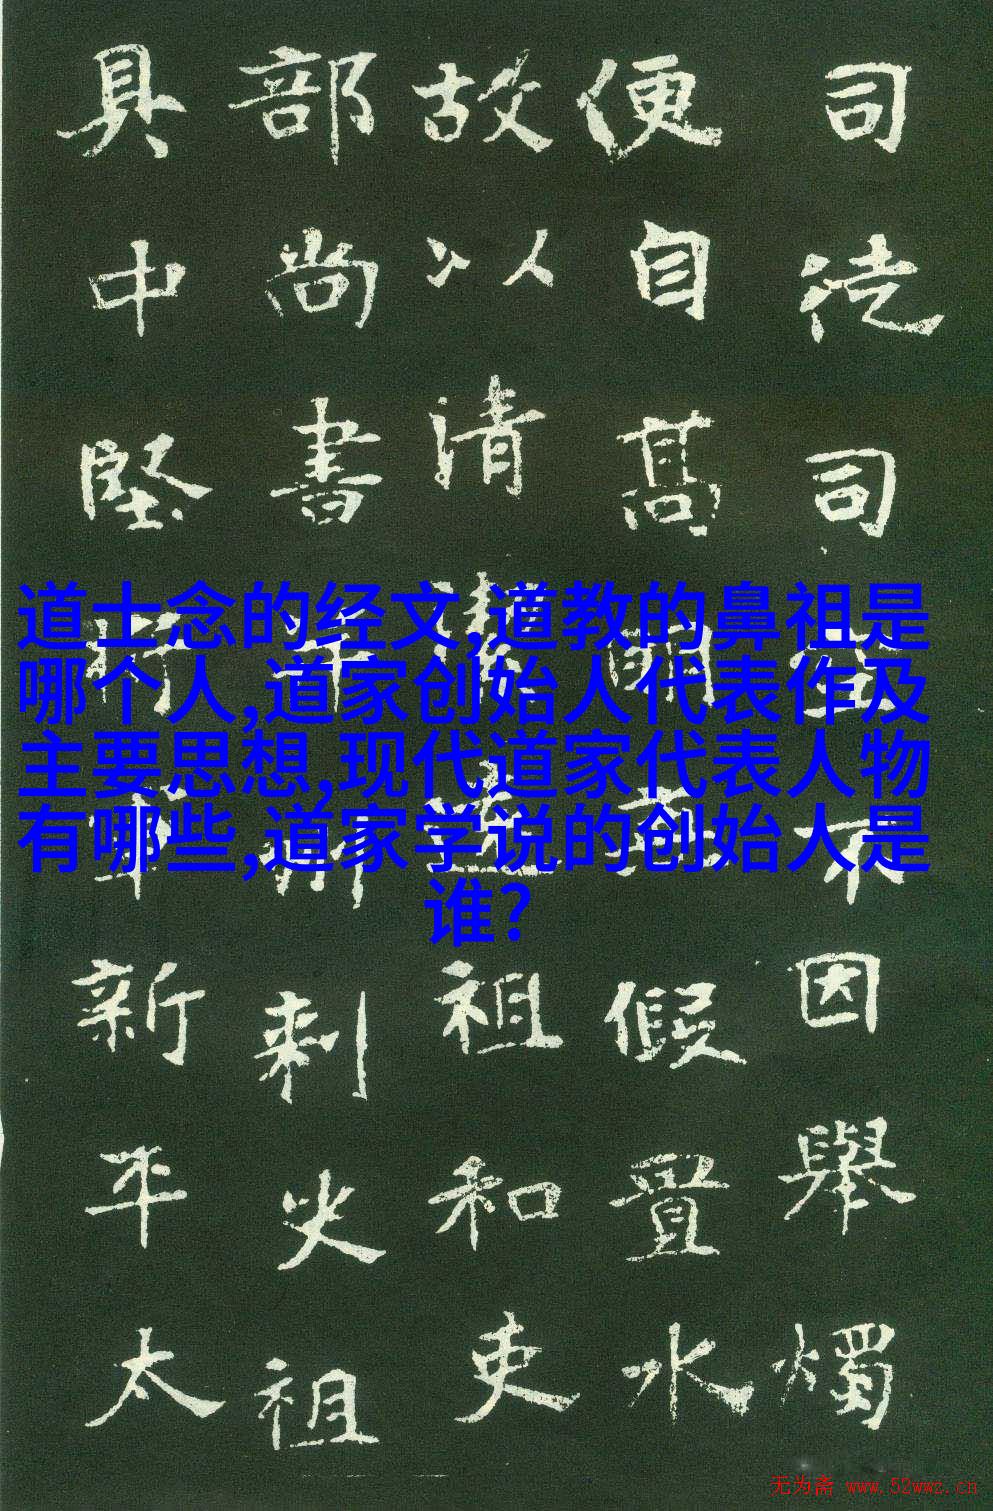 司徒司不因舉燭
便自高明假置水
故以清祖和吏
部尚書州刺史祖
具中堅將軍新平太
道士念的经文,道教的鼻祖是
哪个人,道家创始人代表作及
主要思想,现代道家代表人物
有哪些,道家学说的创始人是
谁?
无为斋 www.52wwz.cn